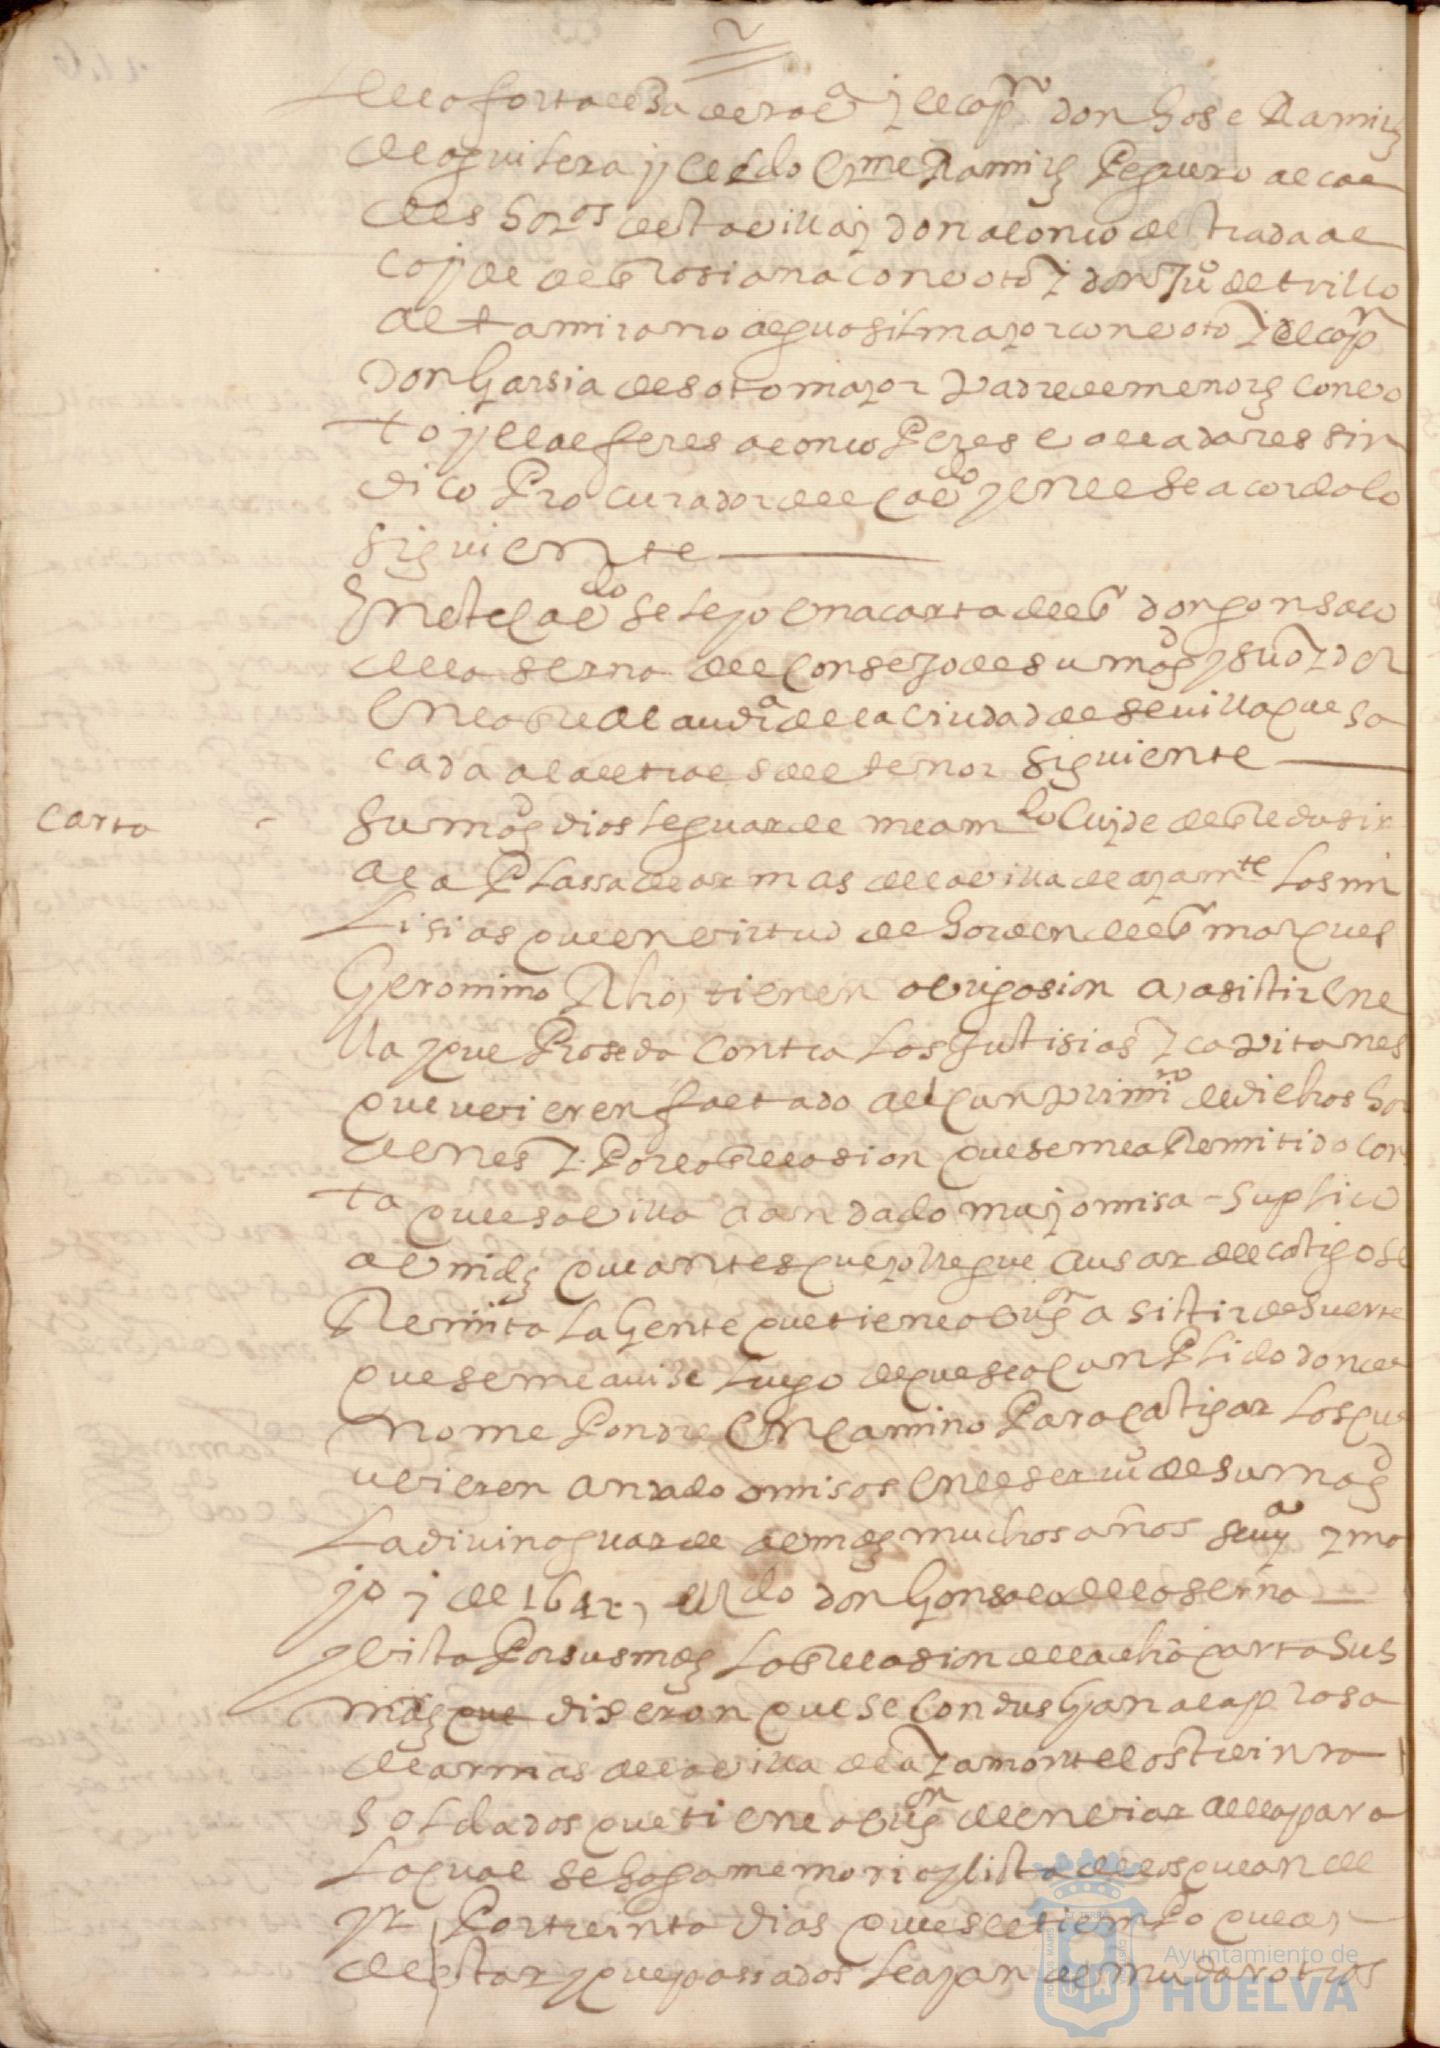 de la fortalesa desta vª y el capn don Jose Ramirs
de aguilera y el ldo Cme Ramirs Peguero alcal
des hors desta villa y don alonso destrada al
cayde de Rosiana con voto y don Juº del trillo
altamirano alguasil mayor con voto y el capn
don Garsia de sotomayor Padre de menors con vo
to y el alferes alonso Peres valladares sin
dico Procurador del cavdo y en el se acordo lo
siguiente
En este cavdo se leyo una carta del sr don gonsalo
de la serna del consejo de su magd y su oydor
en la Real audiª de la ciudad de sevilla que sa
cada a la letra es del tenor siguiente
Carta
su magd dios le guarde me a mdo cuyde de Redusir
a la Plassa de armas de la villa de ayamte las mi
lisias que en virtud de horden del sr marques
Geronimo Rho, tienen obligasion a, asistir en e
lla y que Proseda contra las Justisias y capitanes
que uvieren faltado al cunplimiº de dichos hor
denes y Por la Relasion que se me a Remitido cons
ta que esa villa a andado muy omisa - suplico
a vmds que antes que yo llegue a usar del castigo se
Remita la Gente que tiene obligon a sistir de suerte
que se me avise luego de que sea cunPlido donde
no me Pondre en camino Para castigar los que
uvieren andado omisos en el serviº de su magd
la divina guarde a vmds muchos años sevª y ma
yo 7 de 1642, el ldo don Gonsalo de la serna
y vista Por sus mds la Relasion de la dha carta sus
mds que dixeron que se condusgan a la plasa
de armas de la villa de ayamonte los treinta
soldados que tiene obligon de enviar a ella para
lo qual se haga memoria y lista de los que an de
yr Por treinta dias que es el tiempo que an
de estar y que passados le ayan de mudar otros
Ayuntamiento de
HUELVA